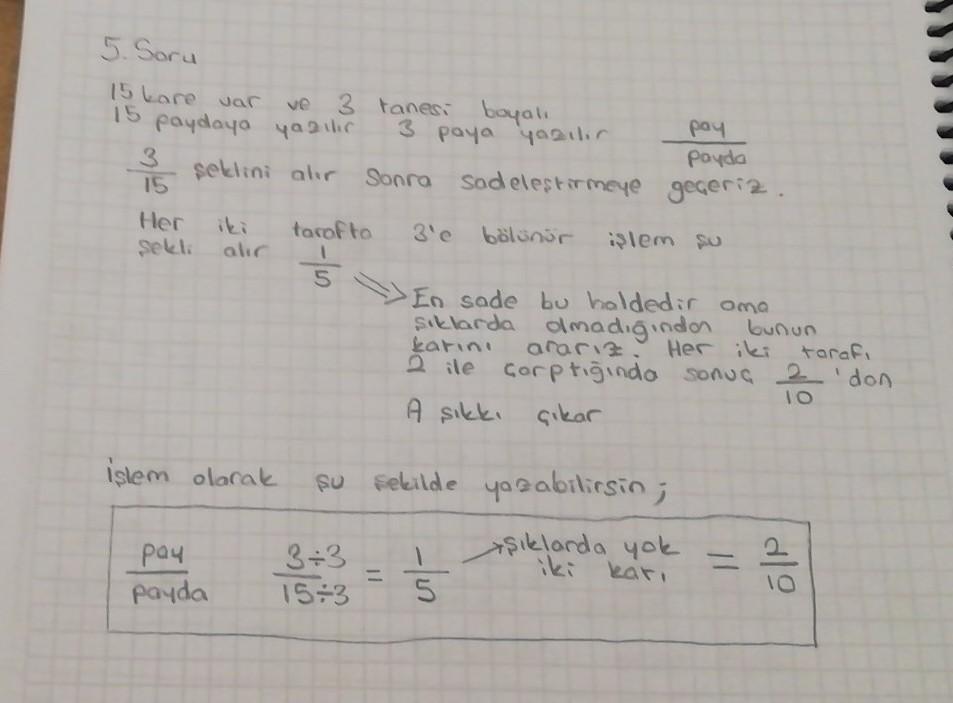 5. Soru
15 kare var ve 3 tanesi boyalı
15 paydaya yazılır 3 paya yazılır pay/payda
3/15 şeklini alır sonra sadeleştirmeye geçeriz.
Her iki tarafta 3'e bölünür işlem şu
şekli alır 1/5
⇒ En sade bu haldedir ama
şıklarda olmadığından bunun
karını ararız. Her iki tarafı
2 ile çarptığında sonuç 2/10 'dan
A şıkkı çıkar
işlem olarak şu şekilde yazabilirsin;
pay/payda 3÷3/15÷3 = 1/5 → şıklarda yok iki karı = 2/10